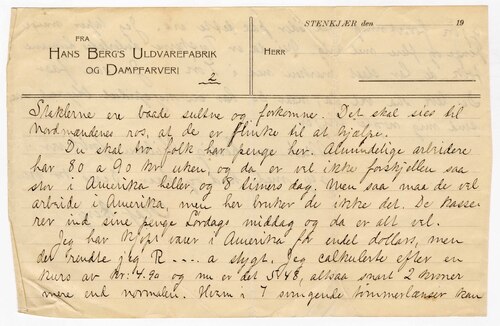 STENKJÆR den 19
FRA
HANS BERG'S ULDVAREFABRIK
OG DAMPFARVERI
HERR
2
Staklerne ere baade sultne og forkomne. Det skal sies til
nordmændenes ros, at de er flinke til at hjælpe.
Du skal tro folk har penge her. Almindelige arbeidere
har 80 a 90 kr uken, og da er vel ikke forskjellen saa
stor i Amerika heller, og 8 timers dag. Men saa maa de vel
arbeide i Amerika, men her bruker de ikke det. De kasse-
rer ind sine penge Lørdags middag og da er alt vel.
Jeg har kjøpt varer i Amerika for endel dollars, men
der rendte jeg R - - - - a stygt. Jeg calkulerte efter en
kurs av kr. 4.90 og nu er det 5.48, altsaa snart 2 kroner
mere end normalen. Hvem i 7 svingende tømmerlænser kan